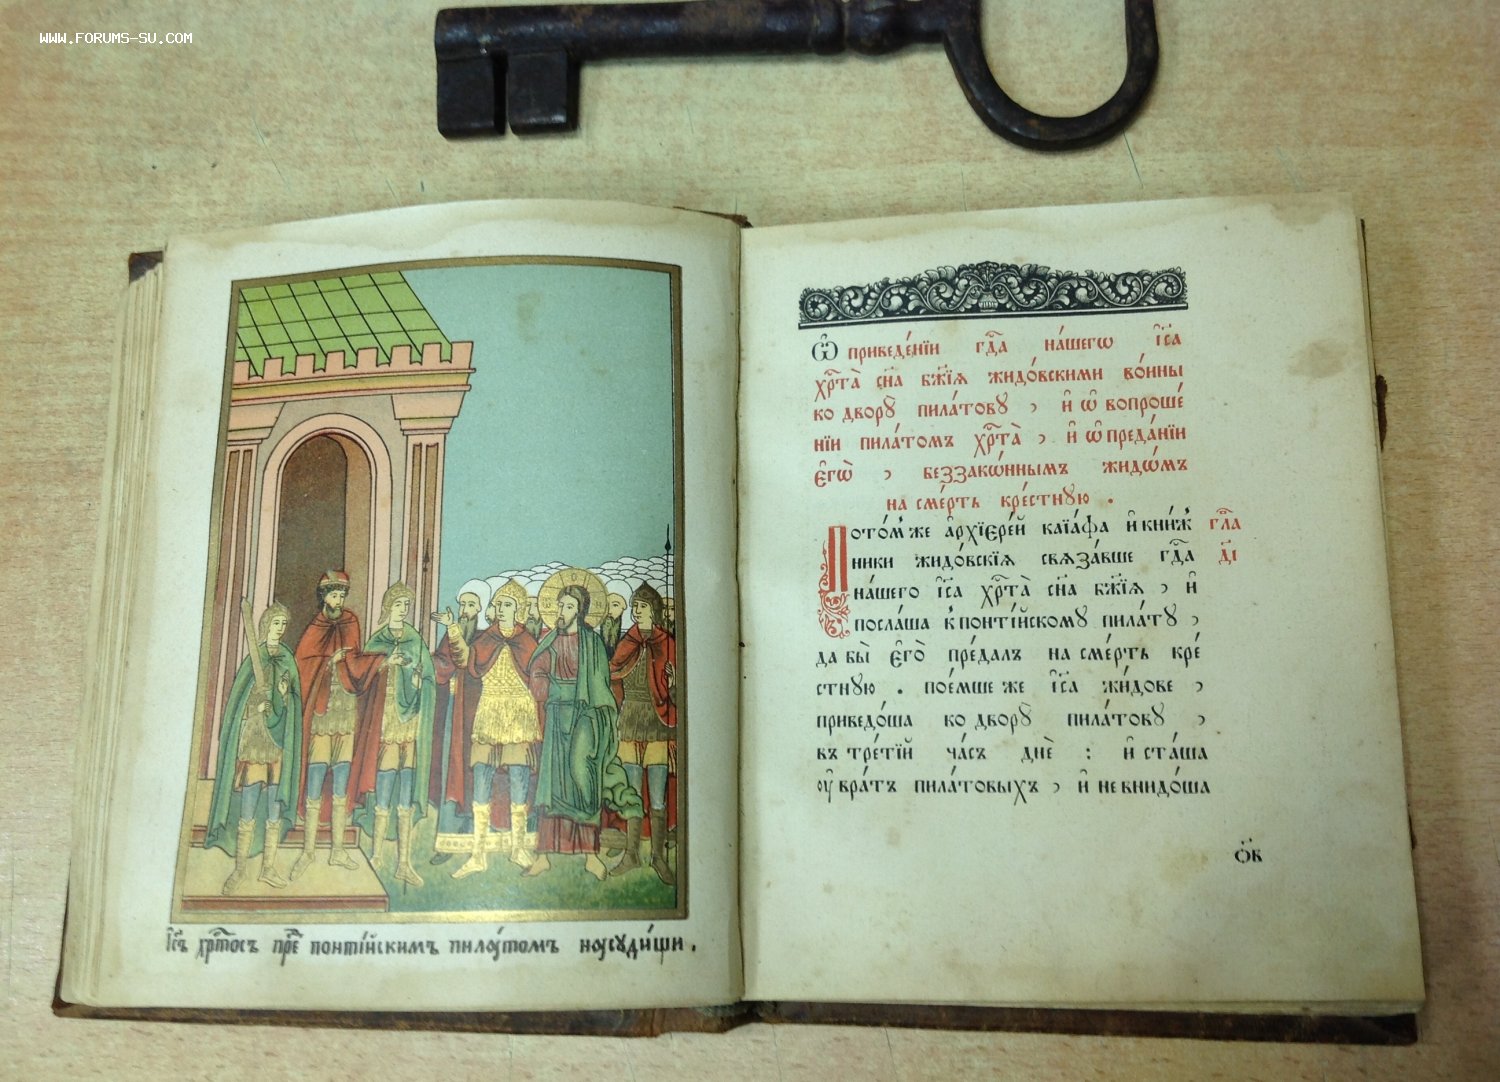 WWW.FORUMS-SU.COM
І҆с҃ъ хрⷭ҇тосъ пре́ понті́йскимъ пилатомъ на судищи .
Ѽ приведе́нїи гдⷭ҇а на́шегѡ і҆с҃а
хрⷭ҇та̀ сн҃а бж҃їѧ жидо́вскими во́ины
ко двору̀ пила́тову , и҆ ѡ҆ вопроше́
нїи пила́томъ хрⷭ҇та̀ , и҆ ѡ҆ преда́нїи
є҆гѡ̀ , беззако́ннымъ жидѡ́мъ
на сме́рть кре́стную .
Пото́мже а҆рхїере́й каїа́фа и҆ кни́ж
ники жидо́вскїѧ свѧза́вше гдⷭ҇а
на́шего і҆с҃а хрⷭ҇та̀ сн҃а бж҃їѧ , и҆
посла́ша к понті́йскому пила́ту ,
да бы̀ є҆го̀ пре́далъ на сме́рть кре́
стную . пое́мше же і҆с҃а жи́дове ,
приведо́ша ко двору̀ пила́тову ,
въ тре́тїй ча́съ днѐ : и҆ ста́ша
ѹ҆ вра́тъ пила́товыхъ , и҆ не внидо́ша
гла
д҃і
о҃в